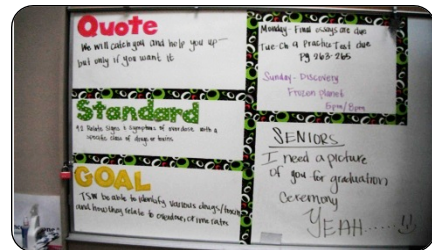 Quote
We will catch you and help you up—
but only if you want it
Standard
9.2 Relate signs & symptoms of overdose with a
specific class of drugs or toxins
GOAL
TSW be able to identify various drugs/toxins
and how they relate to overdose, crime rates
Monday- Final essays are due
Tue- Ch 9 Practice Test due
pg 263-265
Sunday- Discovery
Frozen planet
5pm/8pm
SENIORS
I need a picture
of you for graduation
Ceremony
YEAH......!!